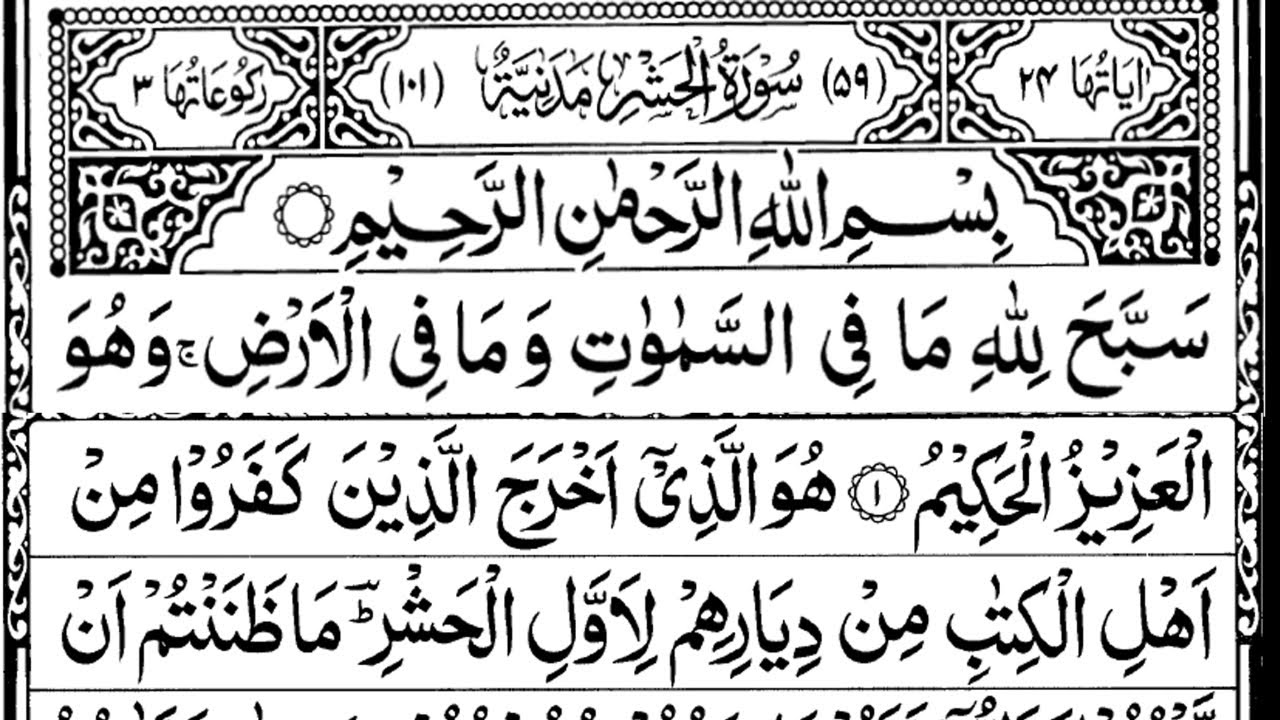 اٰیَاتُهَا ۲۴ (۵۹) سُوْرَةُ الْحَشْرِ مَدَنِیَّةٌ (۱۰۱) رُکُوْعَاتُهَا ۳
بِسْمِ اللّٰهِ الرَّحْمٰنِ الرَّحِیْمِ
سَبَّحَ لِلّٰهِ مَا فِی السَّمٰوٰتِ وَ مَا فِی الْاَرْضِ ۚ وَ هُوَ
الْعَزِیْزُ الْحَكِیْمُ ۱ هُوَ الَّذِیْۤ اَخْرَجَ الَّذِیْنَ كَفَرُوْا مِنْ
اَهْلِ الْكِتٰبِ مِنْ دِیَارِهِمْ لِاَوَّلِ الْحَشْرِ ؔؕ مَا ظَنَنْتُمْ اَنْ